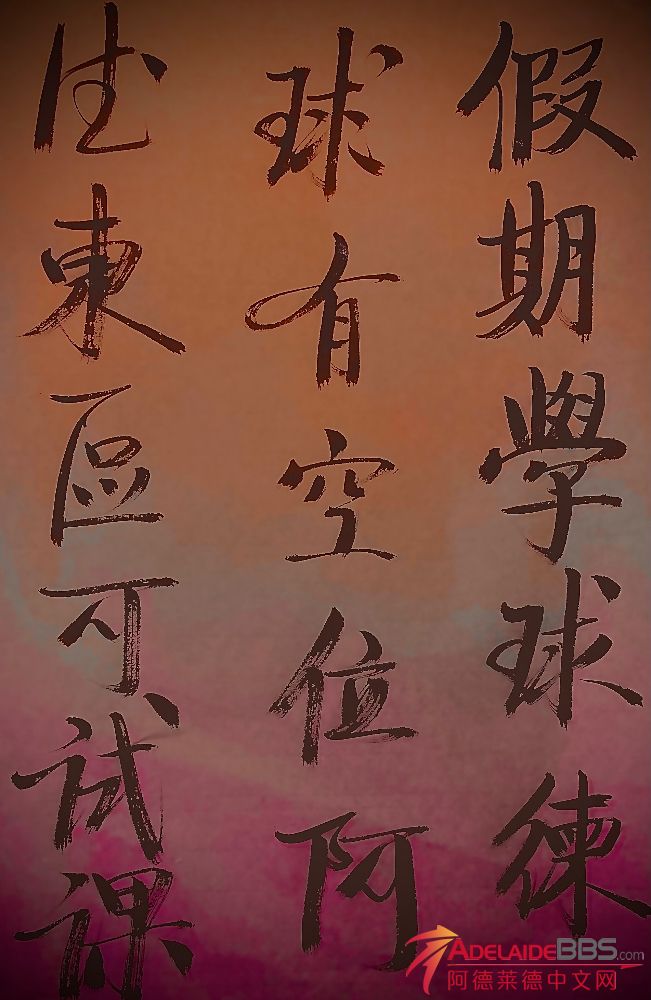 假期學球練
球有空位阿
德東區可試課
ADELAIDEBBS.com
阿德莱德中文网